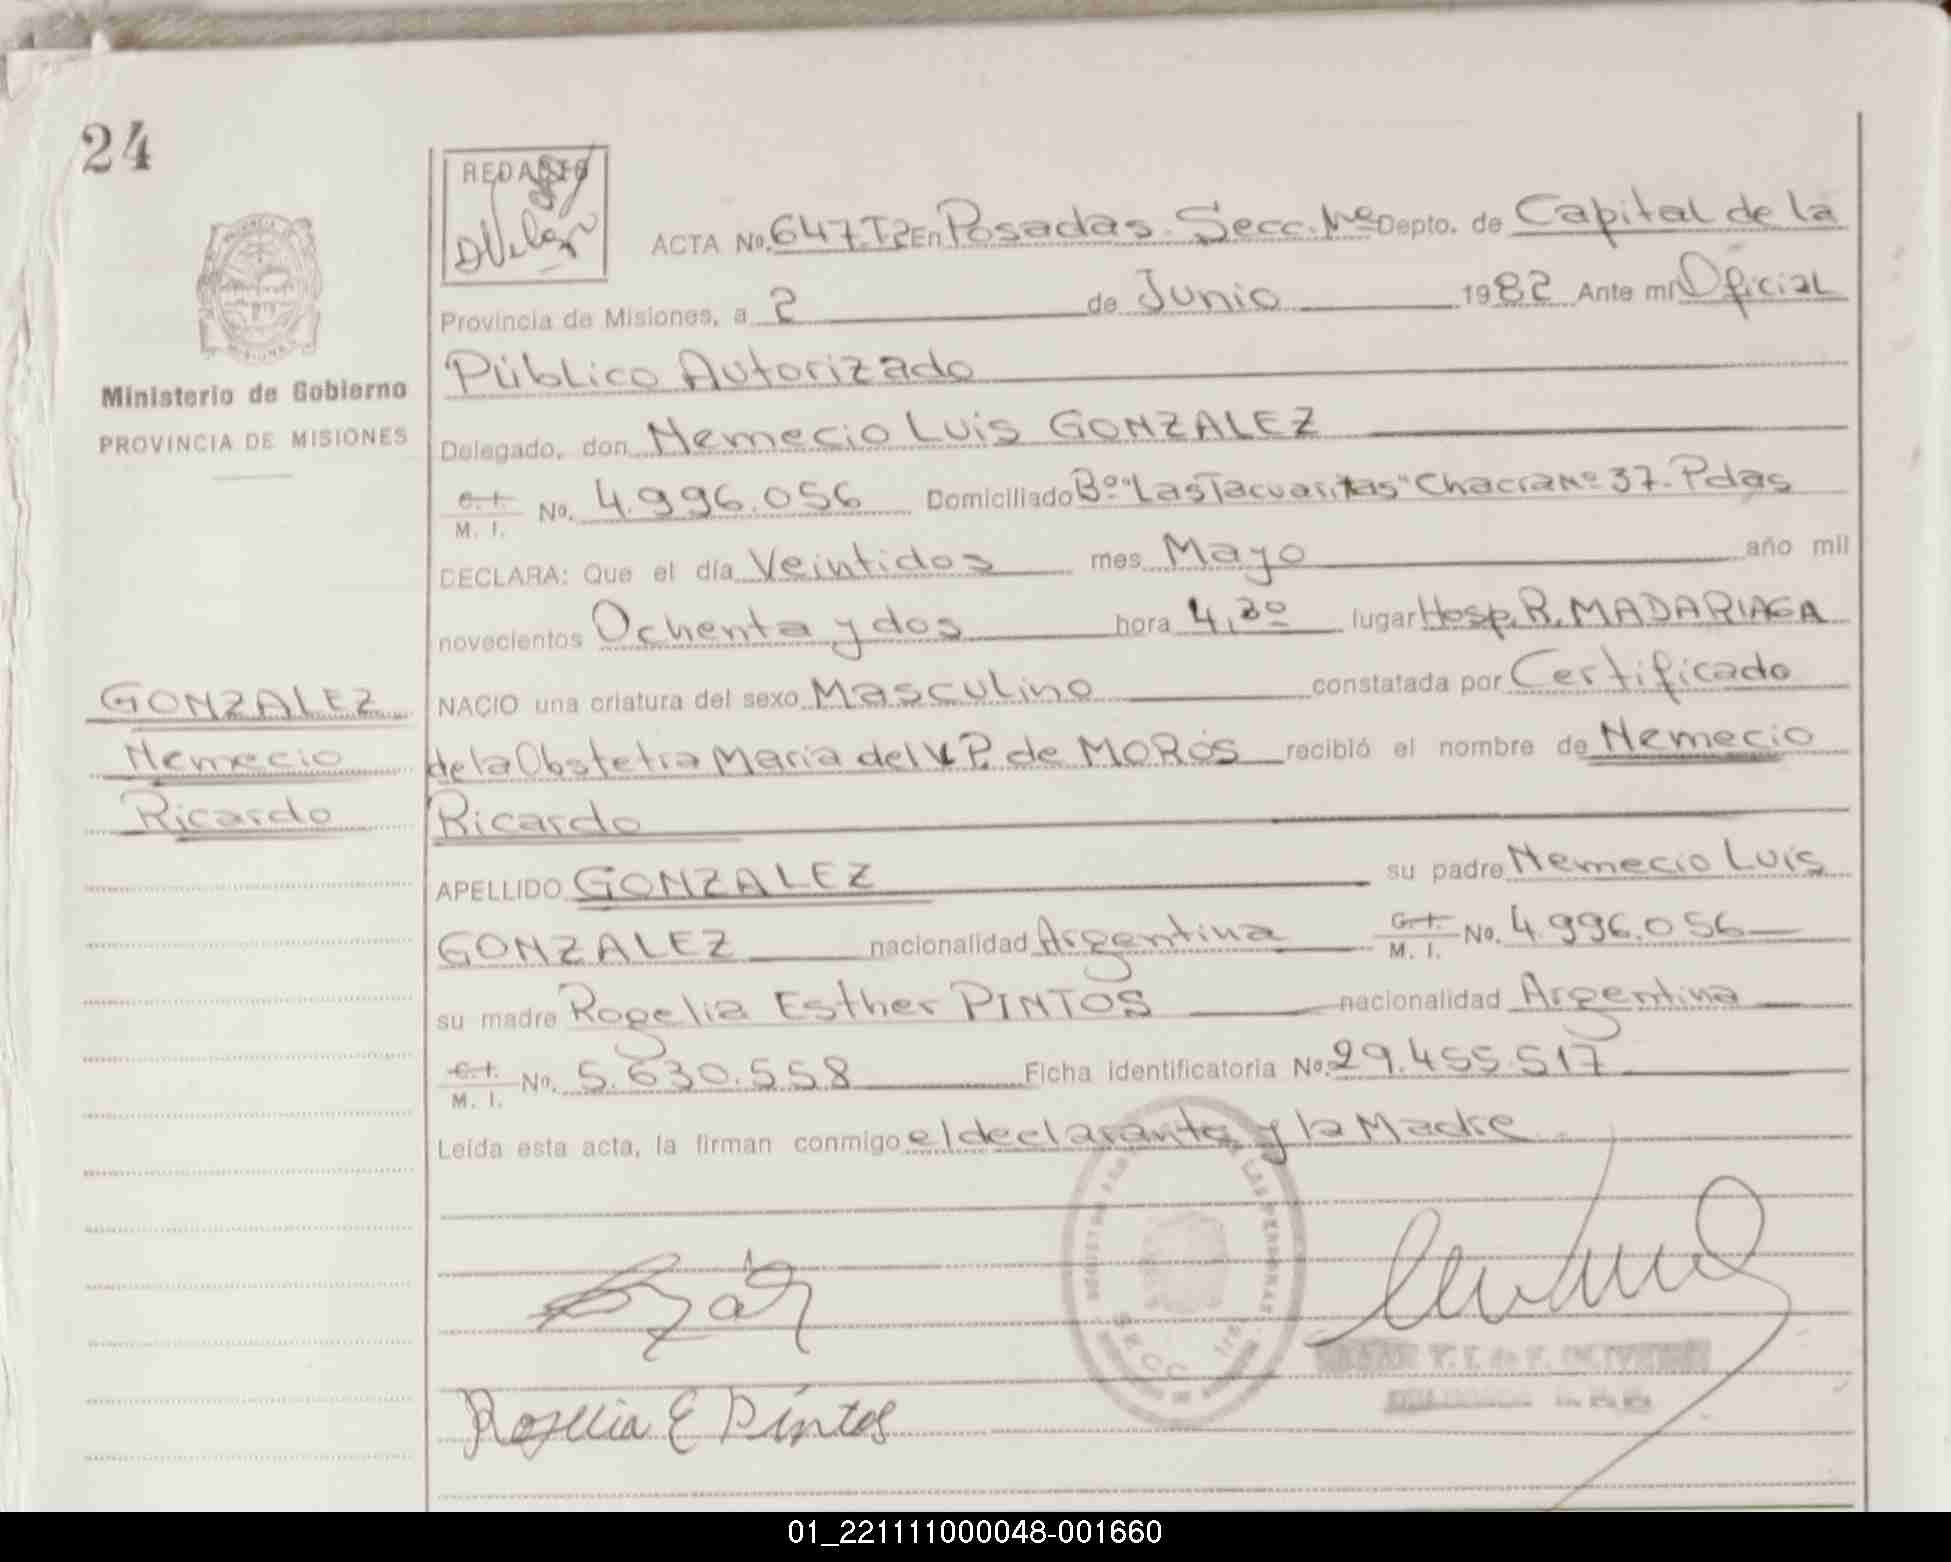 24
REDACTO
ACTA No. 647.T2 En Posadas. Secc. 1ª Depto. de Capital de la
Provincia de Misiones, a 2 de Junio 1982 Ante mi Oficial
Público Autorizado
Ministerio de Gobierno
PROVINCIA DE MISIONES
Delegado, don Nemecio Luis GONZALEZ
C. I.
M. I. No. 4.996.056 Domiciliado Bº "Las Tacuaritas" Chacra Nº 37. Pdas
DECLARA: Que el día Veintidos mes Mayo año mil
novecientos Ochenta y dos hora 4,30 lugar Hosp. R. MADARIAGA
GONZALEZ
Nemecio
Ricardo
NACIO una criatura del sexo Masculino constatada por Certificado
de la Obstetra María del V P. de MOROS recibió el nombre de Nemecio
Ricardo
APELLIDO GONZALEZ su padre Nemecio Luis
GONZALEZ nacionalidad Argentina C. I.
M. I. No. 4.996.056
su madre Rogelia Esther PINTOS nacionalidad Argentina
C. I.
M. I. No. 5.630.558 Ficha identificatoria No. 29.455.517
Leída esta acta, la firman conmigo el declarante y la Madre
SECC.
Rogelia E Pintos
01_221111000048-001660